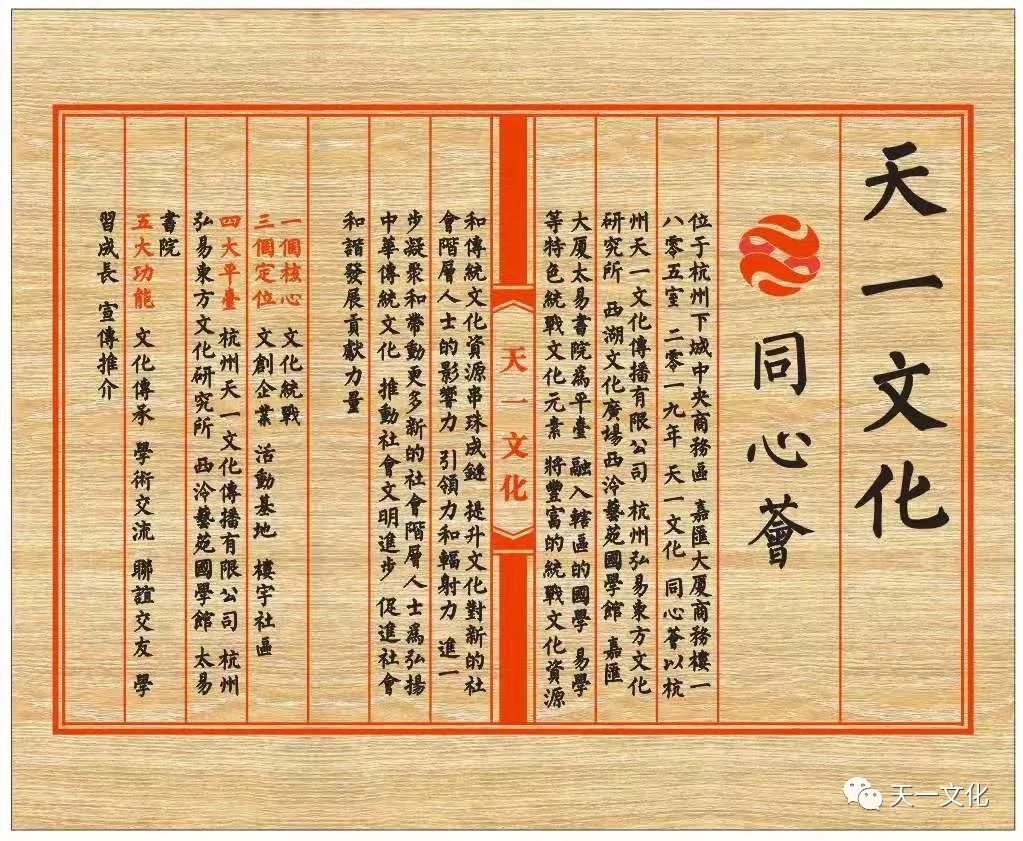 天一文化
同心薈
位于杭州下城中央商務區 嘉匯大厦商務樓一
八零五室 二零一九年 天一文化 同心薈以杭
州天一文化傳播有限公司 杭州弘易東方文化
研究所 西湖文化廣場西泠藝苑國學館 嘉匯
大厦太易書院爲平臺 融入轄區的國學 易學
等特色統戰文化元素 將豐富的統戰文化資源
天一文化
和傳統文化資源串珠成鏈 提升文化對新的社
會階層人士的影響力 引領力和輻射力 進一
步凝聚和帶動更多新的社會階層人士爲弘揚
中華傳統文化 推動社會文明進步 促進社會
和諧發展貢獻力量
一個核心 文化統戰
三個定位 文創企業 活動基地 樓宇社區
四大平臺 杭州天一文化傳播有限公司 杭州
弘易東方文化研究所 西泠藝苑國學館 太易
書院
五大功能 文化傳承 學術交流 聯誼交友 學
習成長 宣傳推介
天一文化